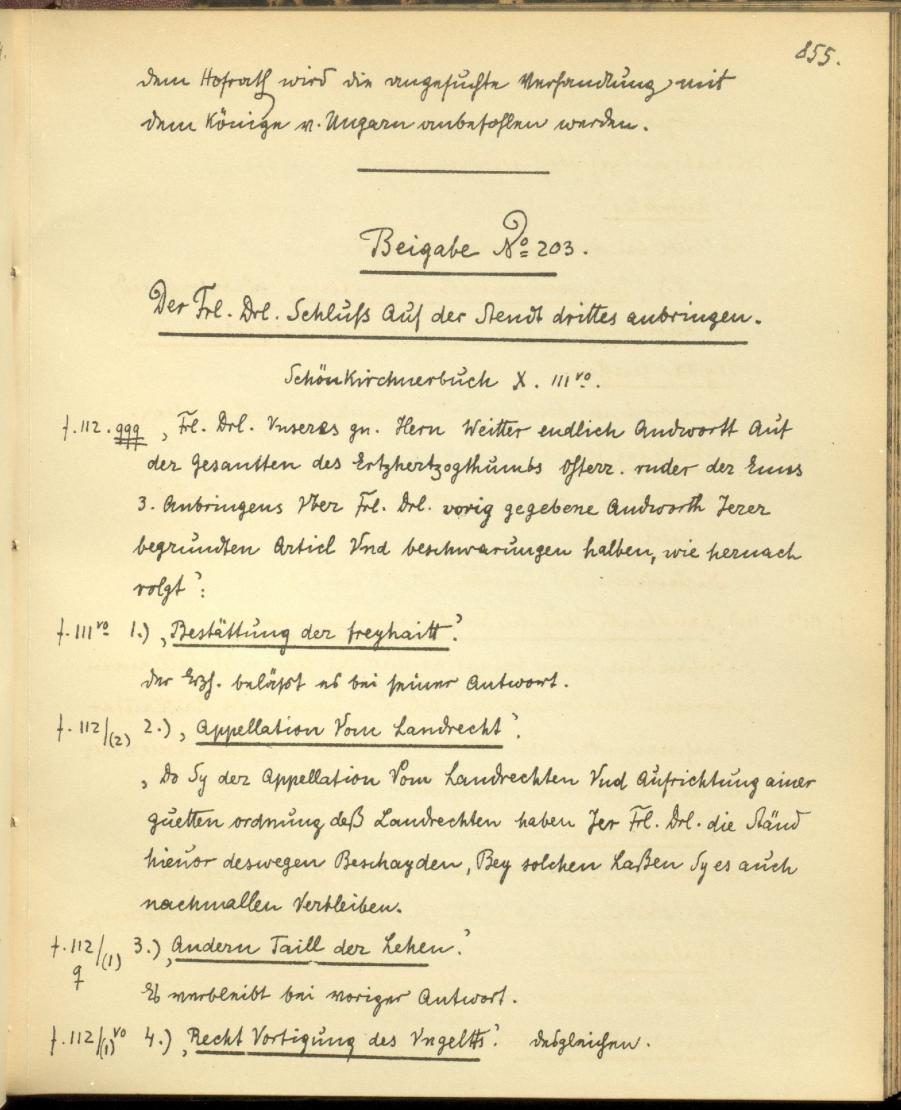 855.
dem Hofrath wird die angesuchte Verhandlung mit
dem Könige v. Ungarn anbefohlen werden.
Beigabe No 203.
Der Frl. Drl. Schluß auf der Stendt drittes anbringen.
Schönkirchnerbuch X. 111vo.
f. 112. qqq „Frl. Drl. Vnseres gn. Hern Weitter endlich Andwortt Auf
der Gesantten des Ertzhertzogthumbs Osterr. vnder der Enns
3. Anbringens Vber Frl. Drl. vorig gegebene Andworth Jerer
begrundten Articl Vnd beschwarungen halben, wie hernach
volgt“:
f. 111vo 1.) „Bestättung der freyhaitt“.
der Erzh. beläßt es bei seiner Antwort.
f. 112/(2) 2.) „Appellation Vom Landrecht“.
„Do Sy der Appellation Vom Landrechten Vnd Aufrichtung ainer
guetten ordnung deß Landrechten haben Jer Frl. Drl. die Ständ
hieuor deswegen Beschayden, Bey solchen Laßen Sy es auch
nachmallen Verbleiben.
f. 112/(1) q 3.) „Andern Taill der Lehen“.
Es verbleibt bei voriger Antwort.
f. 112/(1)vo 4.) „Recht Vortigung des Vngeltts“. desgleichen.